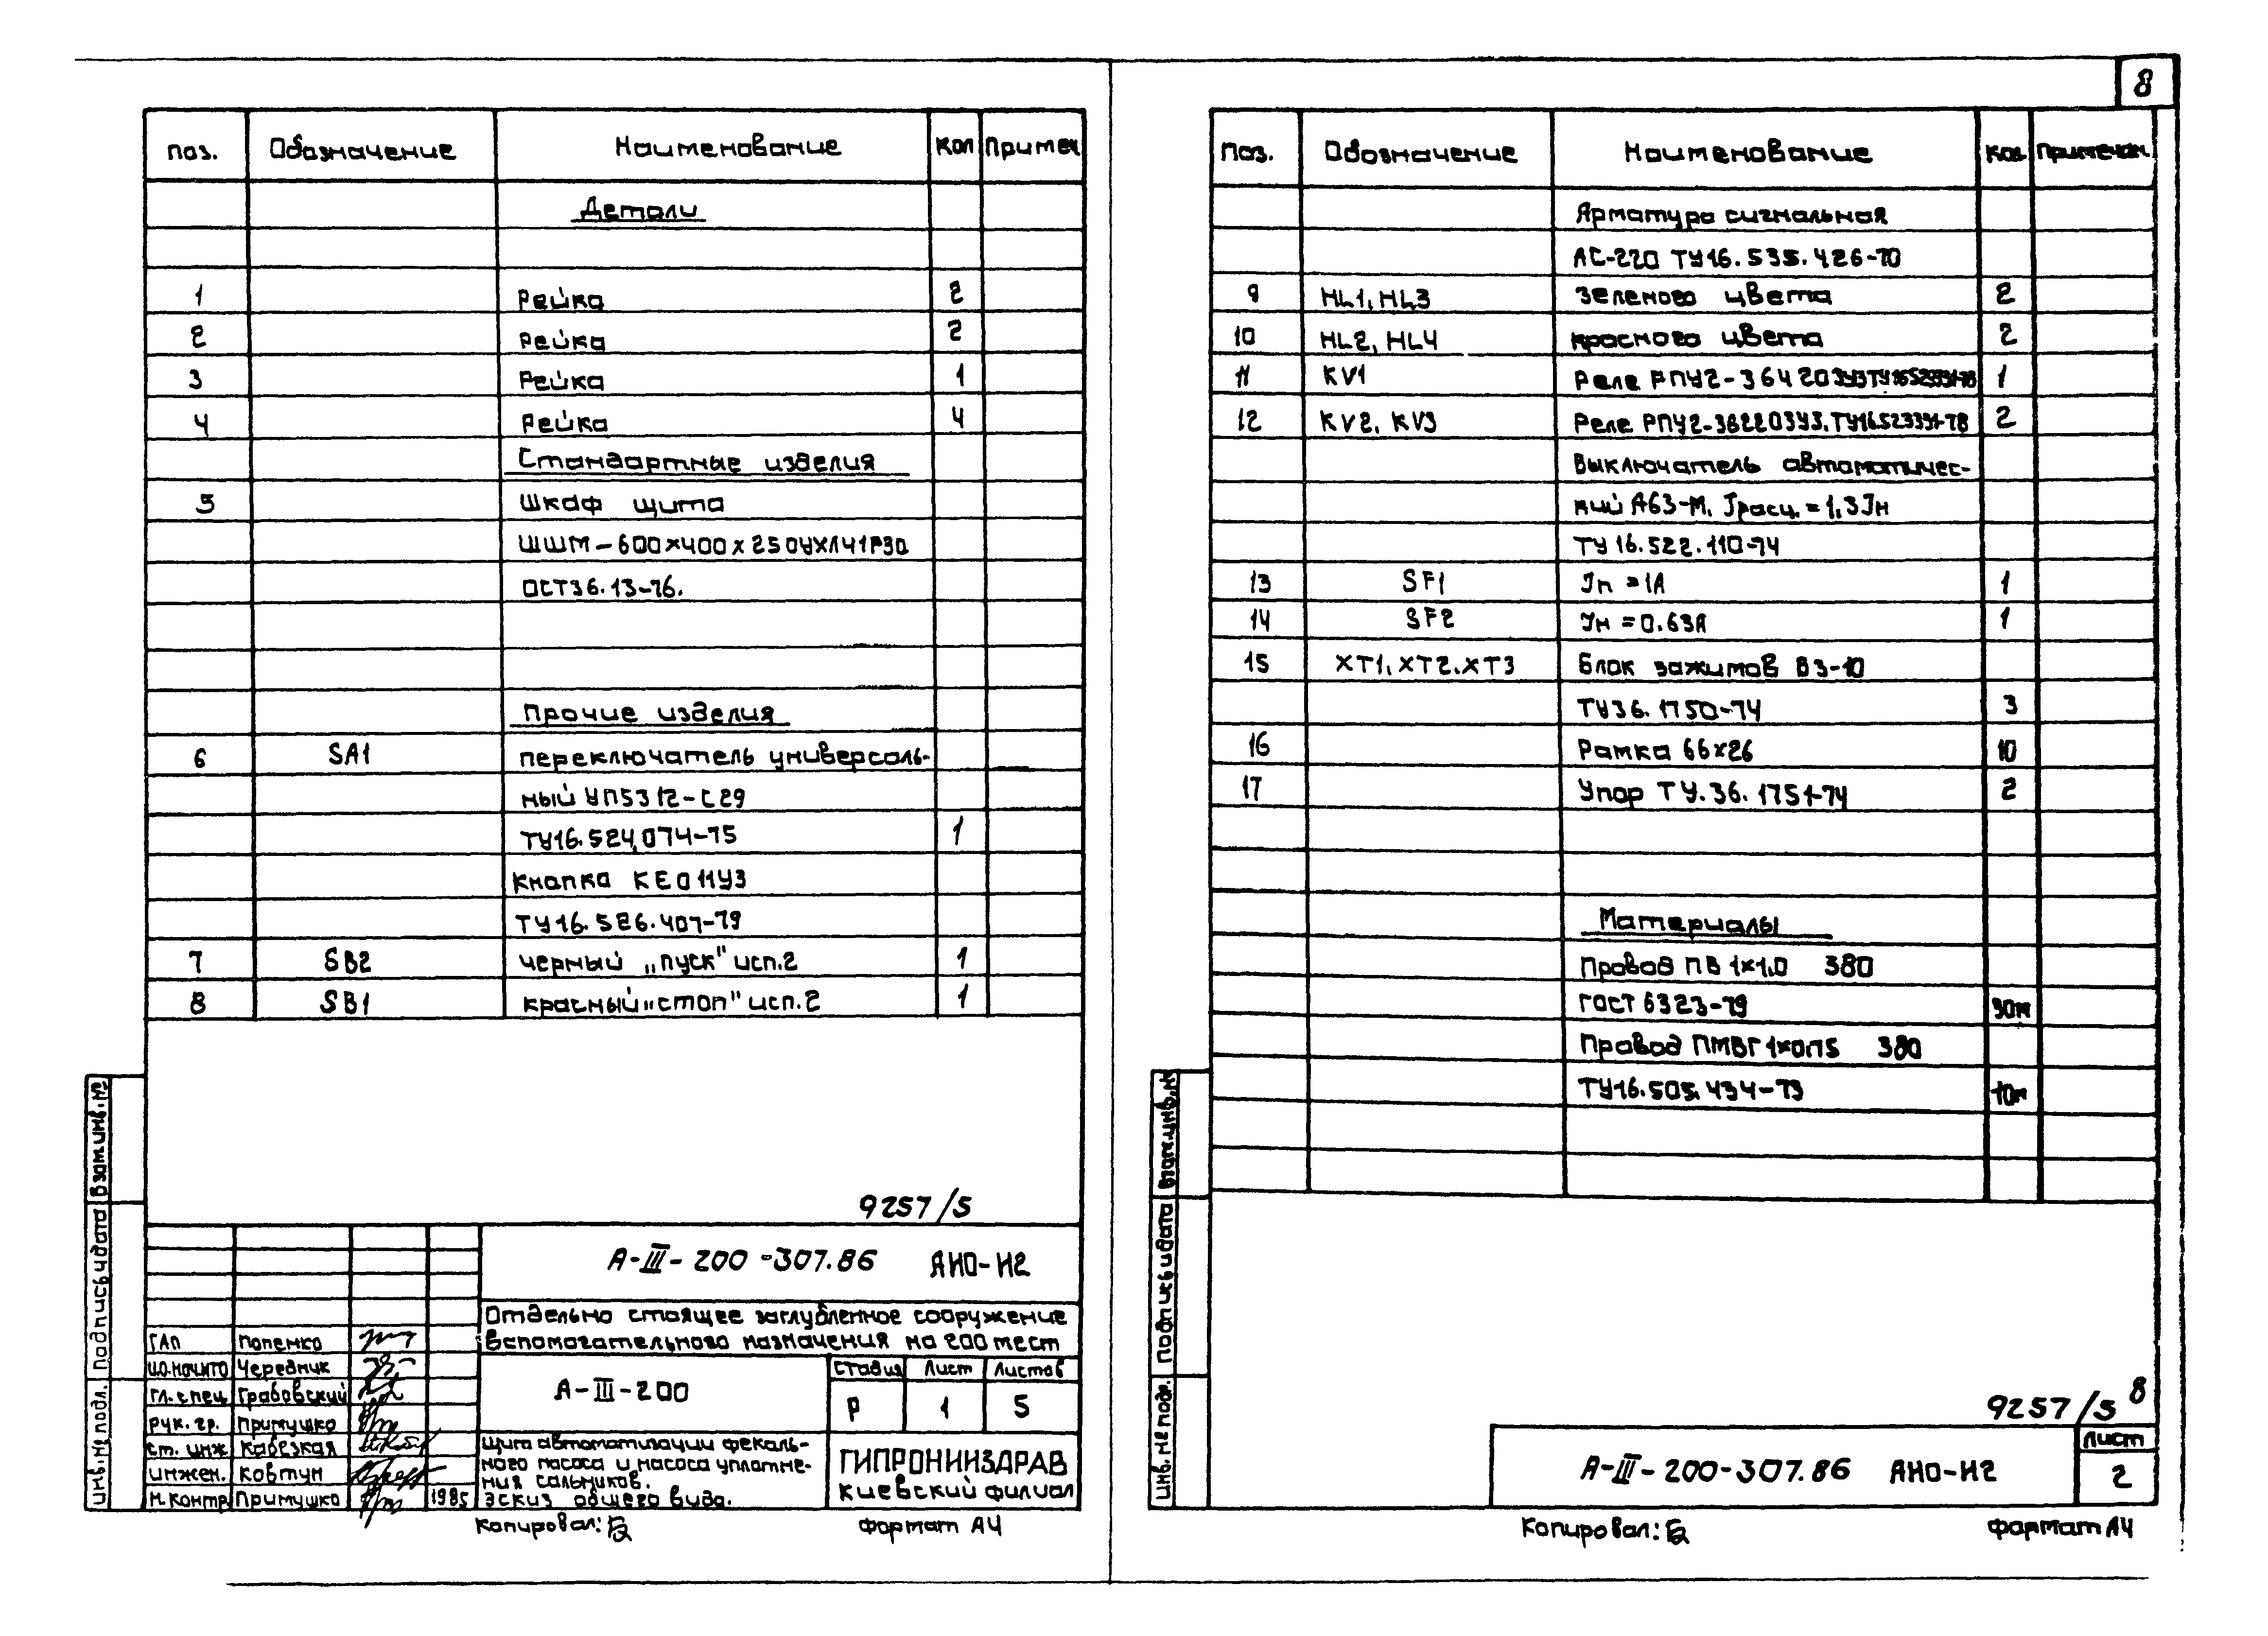 8
поз. Обозначение Наименование Кол Примеч
Детали
1 Рейка 2
2 Рейка 2
3 Рейка 1
4 Рейка 4
Стандартные изделия
5 Шкаф щита
ШШМ-600×400×250УХЛ41Р30
ОСТ36.13-76.
Прочие изделия
6 SA1 переключатель универсаль-
ный УП5312-С29
ТУ16.524.074-75 1
Кнопка КЕ011У3
ТУ16.526.407-79
7 SB2 черный „пуск" исп.2 1
8 SB1 красный „стоп" исп.2 1
9257/5
А-III-200-307.86 АНО-Н2
Отдельно стоящее заглубленное сооружение
вспомогательного назначения на 200 мест
ГАП Попенко
И.О.НАЧ.МТО Чередник
Гл. спец Грабовский
Рук. гр. Примушко
ст. инж Кабезкая
инжен. Ковтун
Н.контр Примушко 1985
А-III-200
Стадия Лист Листов
Р 1 5
Щит автоматизации фекаль-
ного насоса и насоса уплотне-
ния сальников.
Эскиз общего вида.
ГИПРОНИИЗДРАВ
Киевский филиал
Копировал: формат А4
Взам.инв.№
Подпись и дата
Инв.№ подл.
Поз. Обозначение Наименование Кол. Примечан.
Арматура сигнальная
АС-220 ТУ16.535.426-70
9 HL1, HL3 зеленого цвета 2
10 HL2, HL4 красного цвета 2
11 KV1 Реле РПУ2-364203У3ТУ16523331-78 1
12 KV2, KV3 Реле РПУ2-362203У3.ТУ16.523331-78 2
Выключатель автоматичес-
кий А63-М, Iрасц.=1,3Iн
ТУ 16.522.110-74
13 SF1 Iн =1А 1
14 SF2 Iн =0.63А 1
15 XT1, XT2, XT3 Блок зажимов БЗ-10
ТУ36.1750-74 3
16 Рамка 66×26 10
17 Упор ТУ.36.1751-74 2
Материалы
Провод ПВ 1×1.0 380
ГОСТ 6323-79 90м
Провод ПМВГ 1×0.75 380
ТУ16.505.434-73 10м
9257/5 8
А-III-200-307.86 АНО-Н2
Лист
2
Копировал: Формат А4
Взам.инв.№
Подпись и дата
Инв.№ подл.